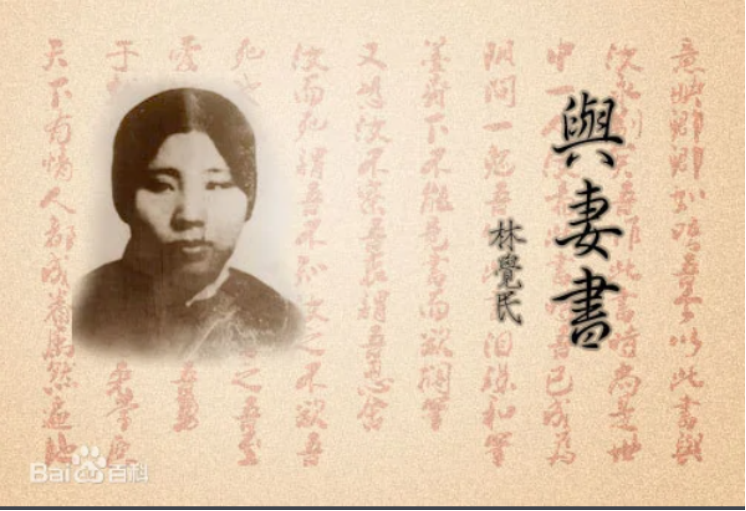 與妻書
林覺民
意映卿卿如晤吾今以此書與
汝永別矣吾作此書時尚是世
中一此書時吾已成為
阴间一鬼吾此泪珠和筆
墨齊下不能竟書而欲擱筆
又恐汝不察吾衷謂吾忍舍
汝而死謂吾不知汝之不欲吾
死之吾至
愛吾勇
于來常愿
天下有情人都成眷屬然遍地
Bai百科